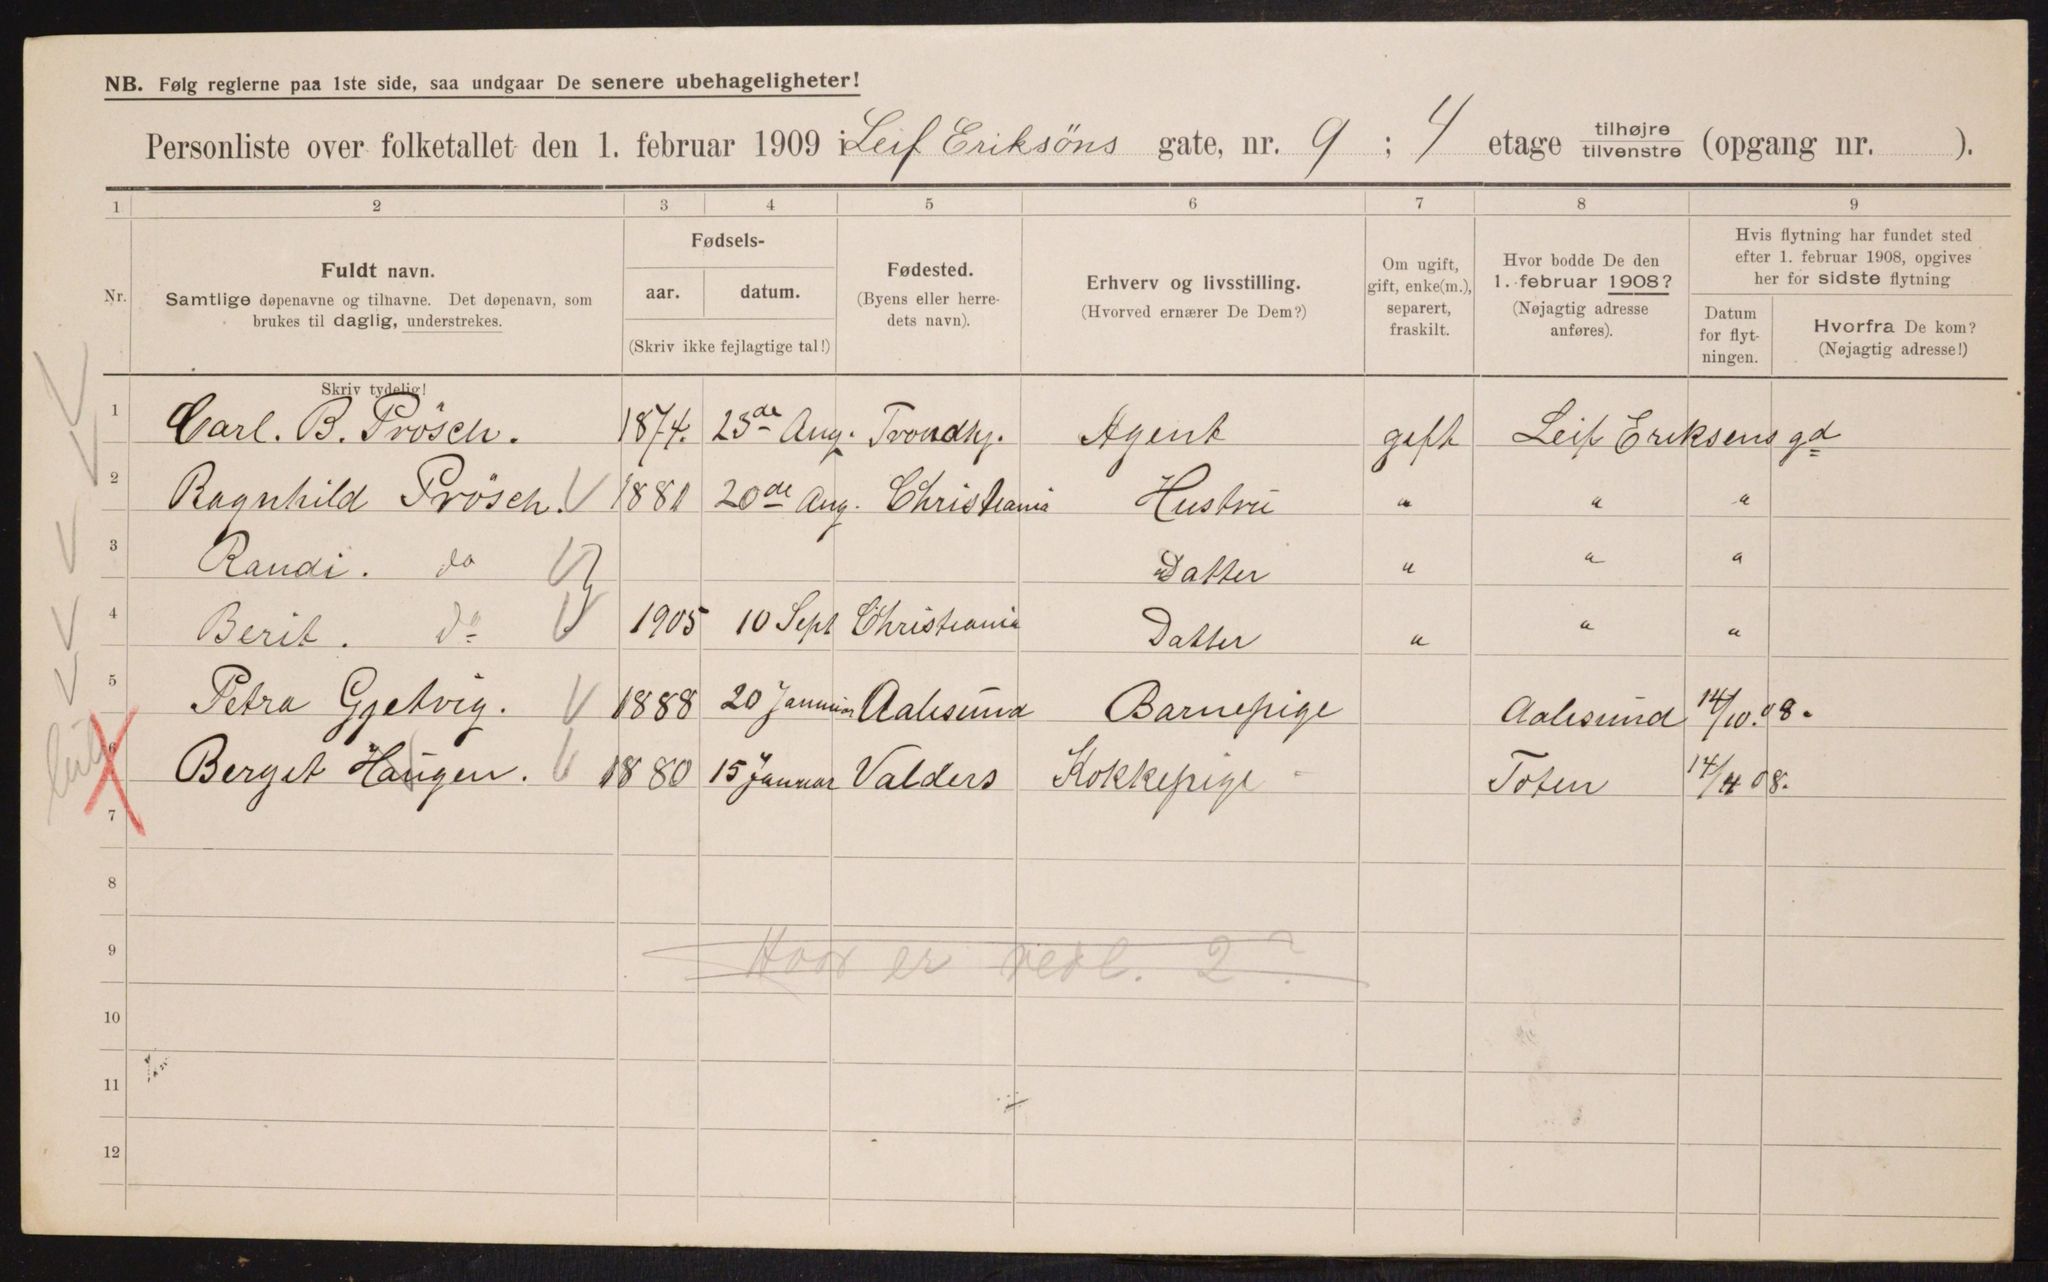 NB. Følg reglerne paa 1ste side, saa undgaar De senere ubehageligheter!
Personliste over folketallet den 1. februar 1909 i Leif Eriksöns gate, nr. 9 ; 4 etage tilhøjre tilvenstre (opgang nr. ).
1 2 3 4 5 6 7 8 9
Nr.
Fuldt navn.
Samtlige døpenavne og tilhavne. Det døpenavn, som
brukes til daglig, understrekes.
Skriv tydelig!
Fødsels-
aar. datum.
(Skriv ikke fejlagtige tal!)
Fødested.
(Byens eller herre-
dets navn).
Erhverv og livsstilling.
(Hvorved ernærer De Dem?)
Om ugift,
gift, enke(m.),
separert,
fraskilt.
Hvor bodde De den
1. februar 1908?
(Nøjagtig adresse
anføres).
Hvis flytning har fundet sted
efter 1. februar 1908, opgives
her for sidste flytning
Datum
for flyt-
ningen.
Hvorfra De kom?
(Nøjagtig adresse!)
1 Carl. B. Prösch. 1874. 23de Aug. Trondhj. Agent gift Leif Eriksens gd
2 Ragnhild Prösch. 1881 20de Aug. Christiania Hustru " " "
3 Randi. do Datter " " "
4 Berit. do 1905 10 Sept Christiania Datter " " "
5 Petra Gjetvig. 1888 20 Januar Aalesund Barnepige Aalesund 14/10.08.
6 Berget Haugen. 1880 15 Januar Valders Kokkepige Toten 14/4 08.
7
8
9 Hvor er vedl. 2?
10
11
12